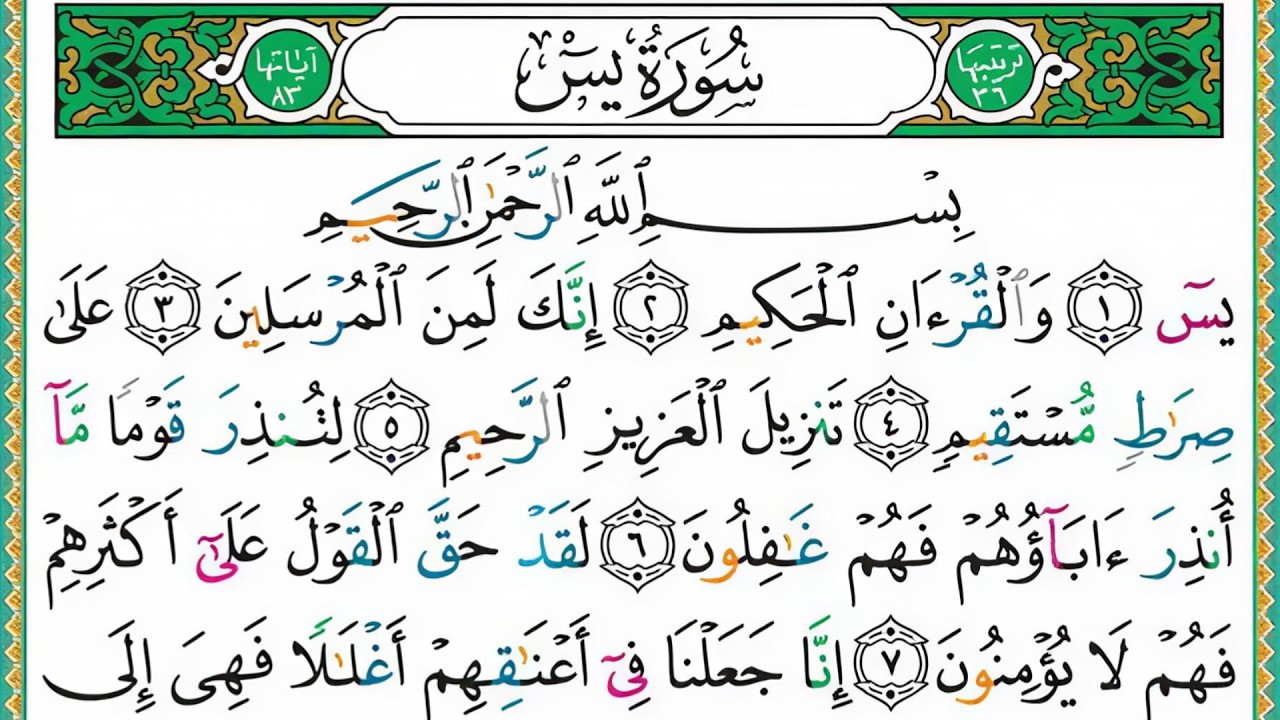 ترتيبها ٣٦ سُورَةُ يسٓ آياتها ٨٣
بِسْمِ ٱللَّهِ ٱلرَّحْمَٰنِ ٱلرَّحِيمِ
يسٓ ١ وَٱلْقُرْءَانِ ٱلْحَكِيمِ ٢ إِنَّكَ لَمِنَ ٱلْمُرْسَلِينَ ٣ عَلَىٰ
صِرَٰطٍ مُّسْتَقِيمٍ ٤ تَنزِيلَ ٱلْعَزِيزِ ٱلرَّحِيمِ ٥ لِتُنذِرَ قَوْمًا مَّآ
أُنذِرَ ءَابَآؤُهُمْ فَهُمْ غَٰفِلُونَ ٦ لَقَدْ حَقَّ ٱلْقَوْلُ عَلَىٰٓ أَكْثَرِهِمْ
فَهُمْ لَا يُؤْمِنُونَ ٧ إِنَّا جَعَلْنَا فِىٓ أَعْنَٰقِهِمْ أَغْلَٰلًا فَهِىَ إِلَى